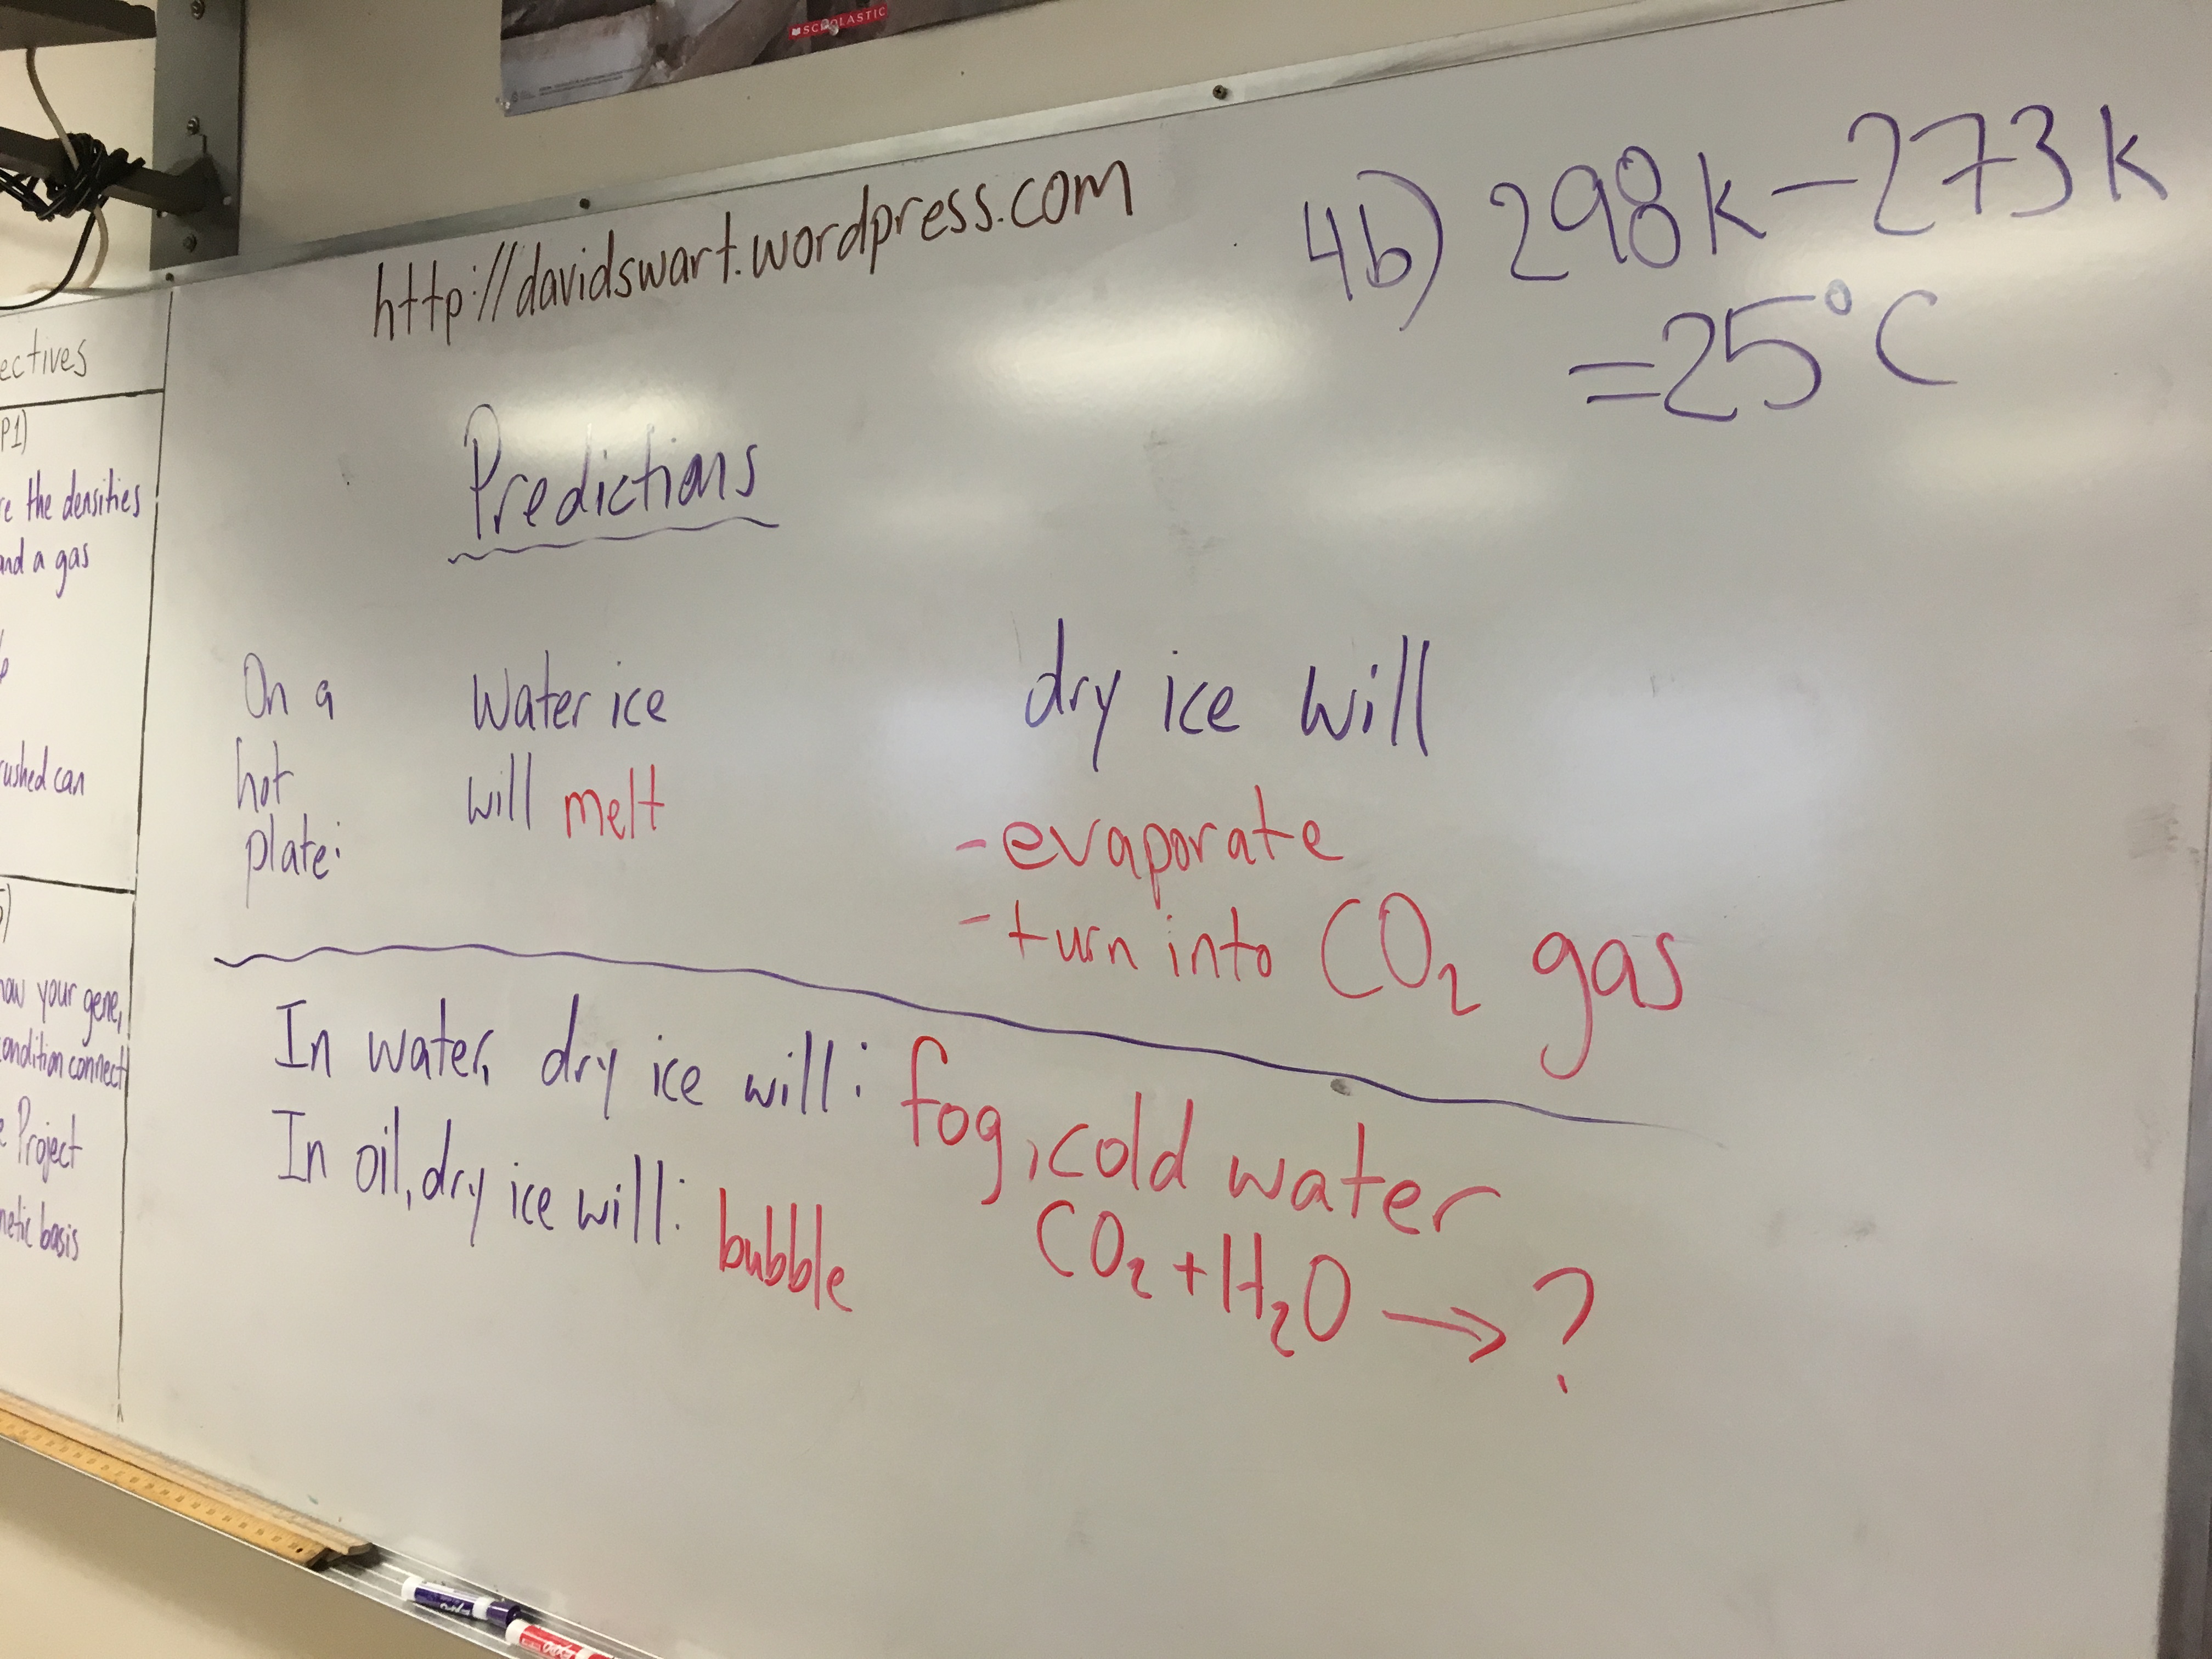 SCHOLASTIC
http://davidswart.wordpress.com
4b) 298k-273k
=25°C
Predictions
On a
hot
plate:
Water ice
will melt
dry ice will
-evaporate
-turn into CO₂ gas
In water, dry ice will: fog, cold water
CO₂+H₂O → ?
In oil, dry ice will: bubble
ectives
P1)
re the densities
and a gas
ushed can
how your gene,
condition connect
e Project
netic basis